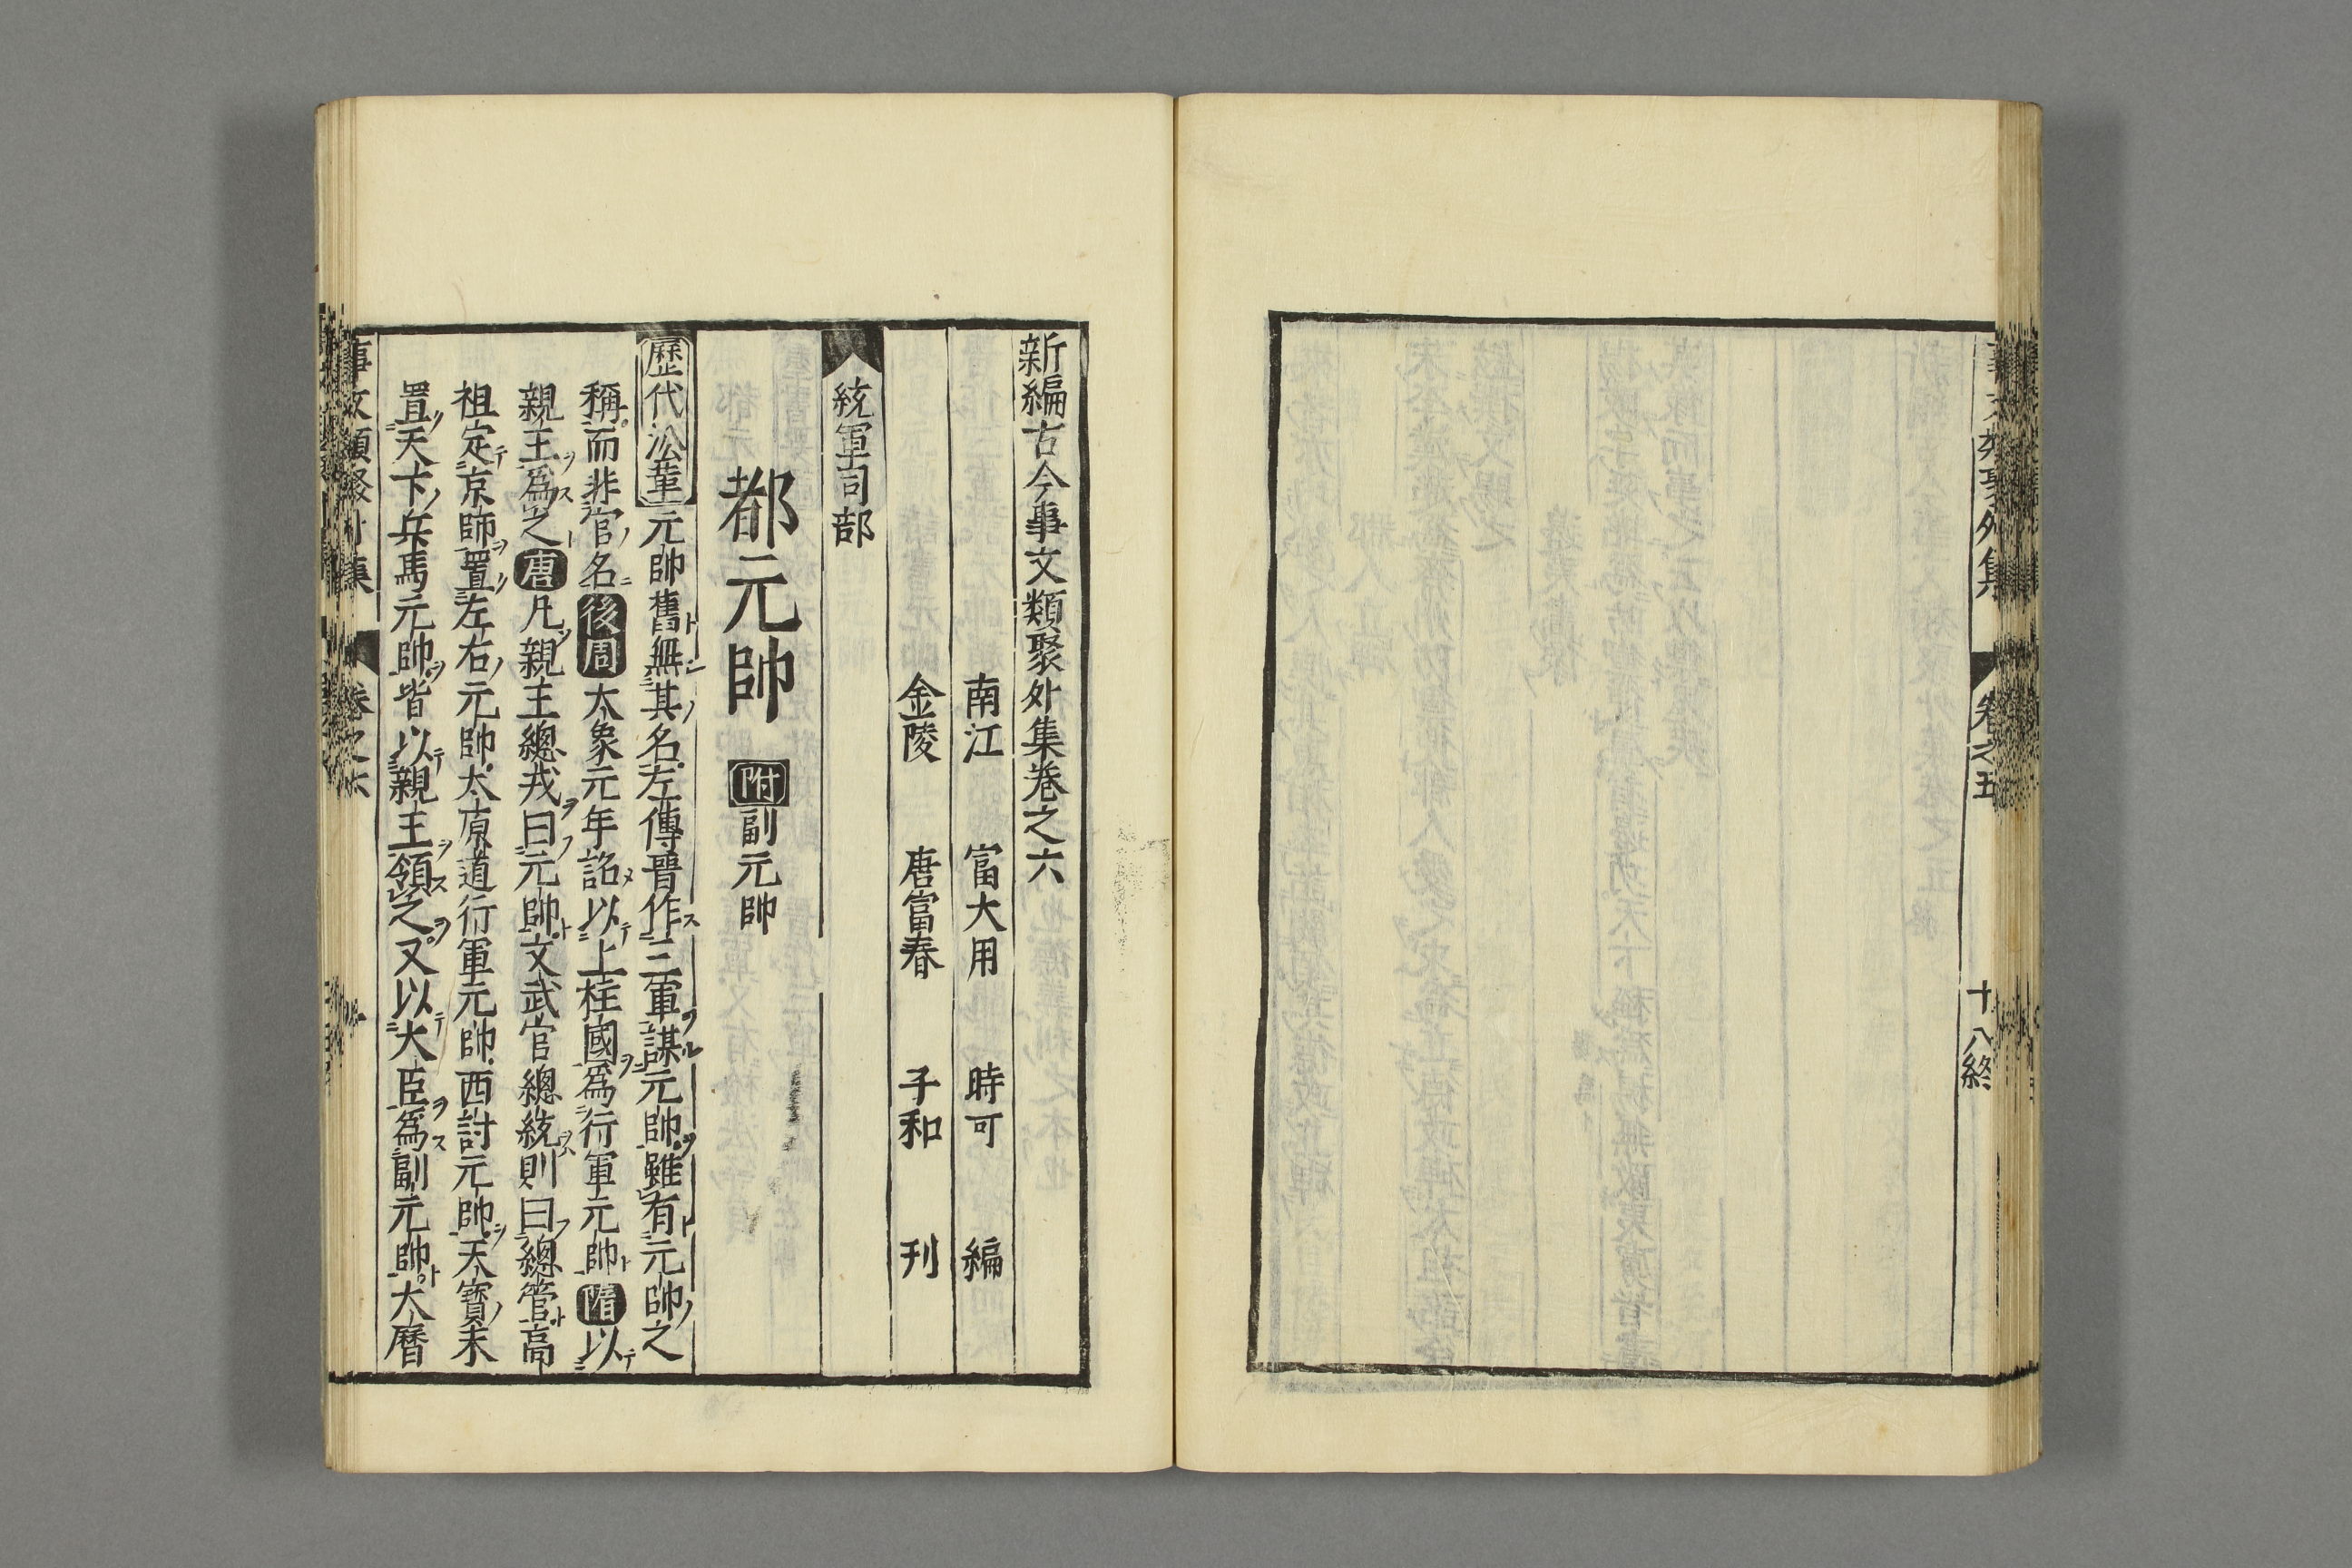 卷之五
十八終
新編古今事文類聚外集卷之六
南江 富大用 時可 編
金陵 唐富春 子和 刊
統軍司部
都元帥 附副元帥
歷代沿革元帥舊無其名左傳晉作三軍謀元帥雖有元帥之
稱而非官名後周太象元年詔以上柱國爲行軍元帥隋以
親王爲之唐凡親王總戎曰元帥文武官總統則曰總管高
祖定京師置左右元帥太原道行軍元帥西討元帥天寶末
置天下兵馬元帥皆以親王領之又以大臣爲副元帥大曆